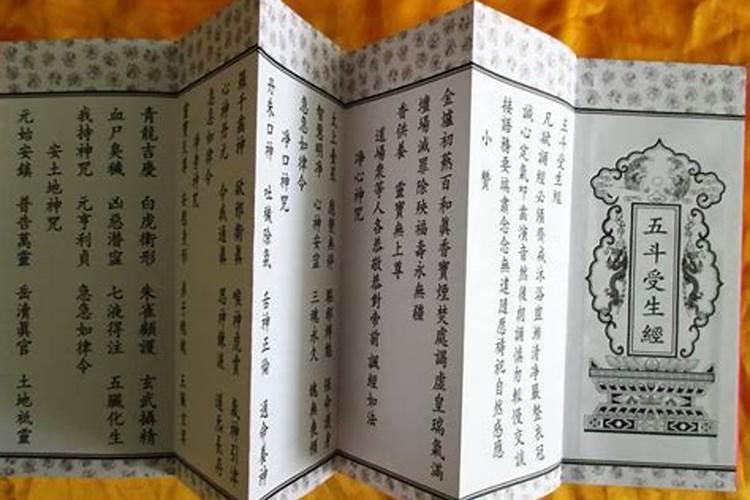 五斗受生經
五斗受生經
凡欲誦經必須齋戒沐浴盥漱清淨嚴整衣冠
誠心定氣叩齒演音然後朗誦慎勿輕慢交談
接語務要端肅念念無違隨應禱祀自然感應
小讚
金爐初爇百和眞香寶煙焚處謁虛皇瑞氣滿
壇場滅罪除殃福壽永無疆
香供養 靈寶無上尊
道場衆等人各恭敬恭對帝前 誦經如法
淨心神咒
太上臺星 應變無停 驅邪縛魅 保命護身
智慧明淨 心神安寍 三魂永久 魄無喪傾
急急如律令
淨口神咒
丹朱口神 吐穢除氛 舌神正倫 通命養神
羅千齒神 卻邪衛眞 喉神虎賁 氣神引津
心神丹元 令我通眞 思神鍊液 道炁長存
急急如律令
淨身神咒
靈寶天尊 安慰身形 弟子魂魄 五臟玄冥
青龍吉慶 白虎衛形 朱雀顧護 玄武攝精
血尸臭穢 凶惡潛寍 七液得注 五臟化生
我持神咒 元亨利貞 急急如律令
安土地神咒
元始安鎮 普告萬靈 岳清眞官 土地祗靈